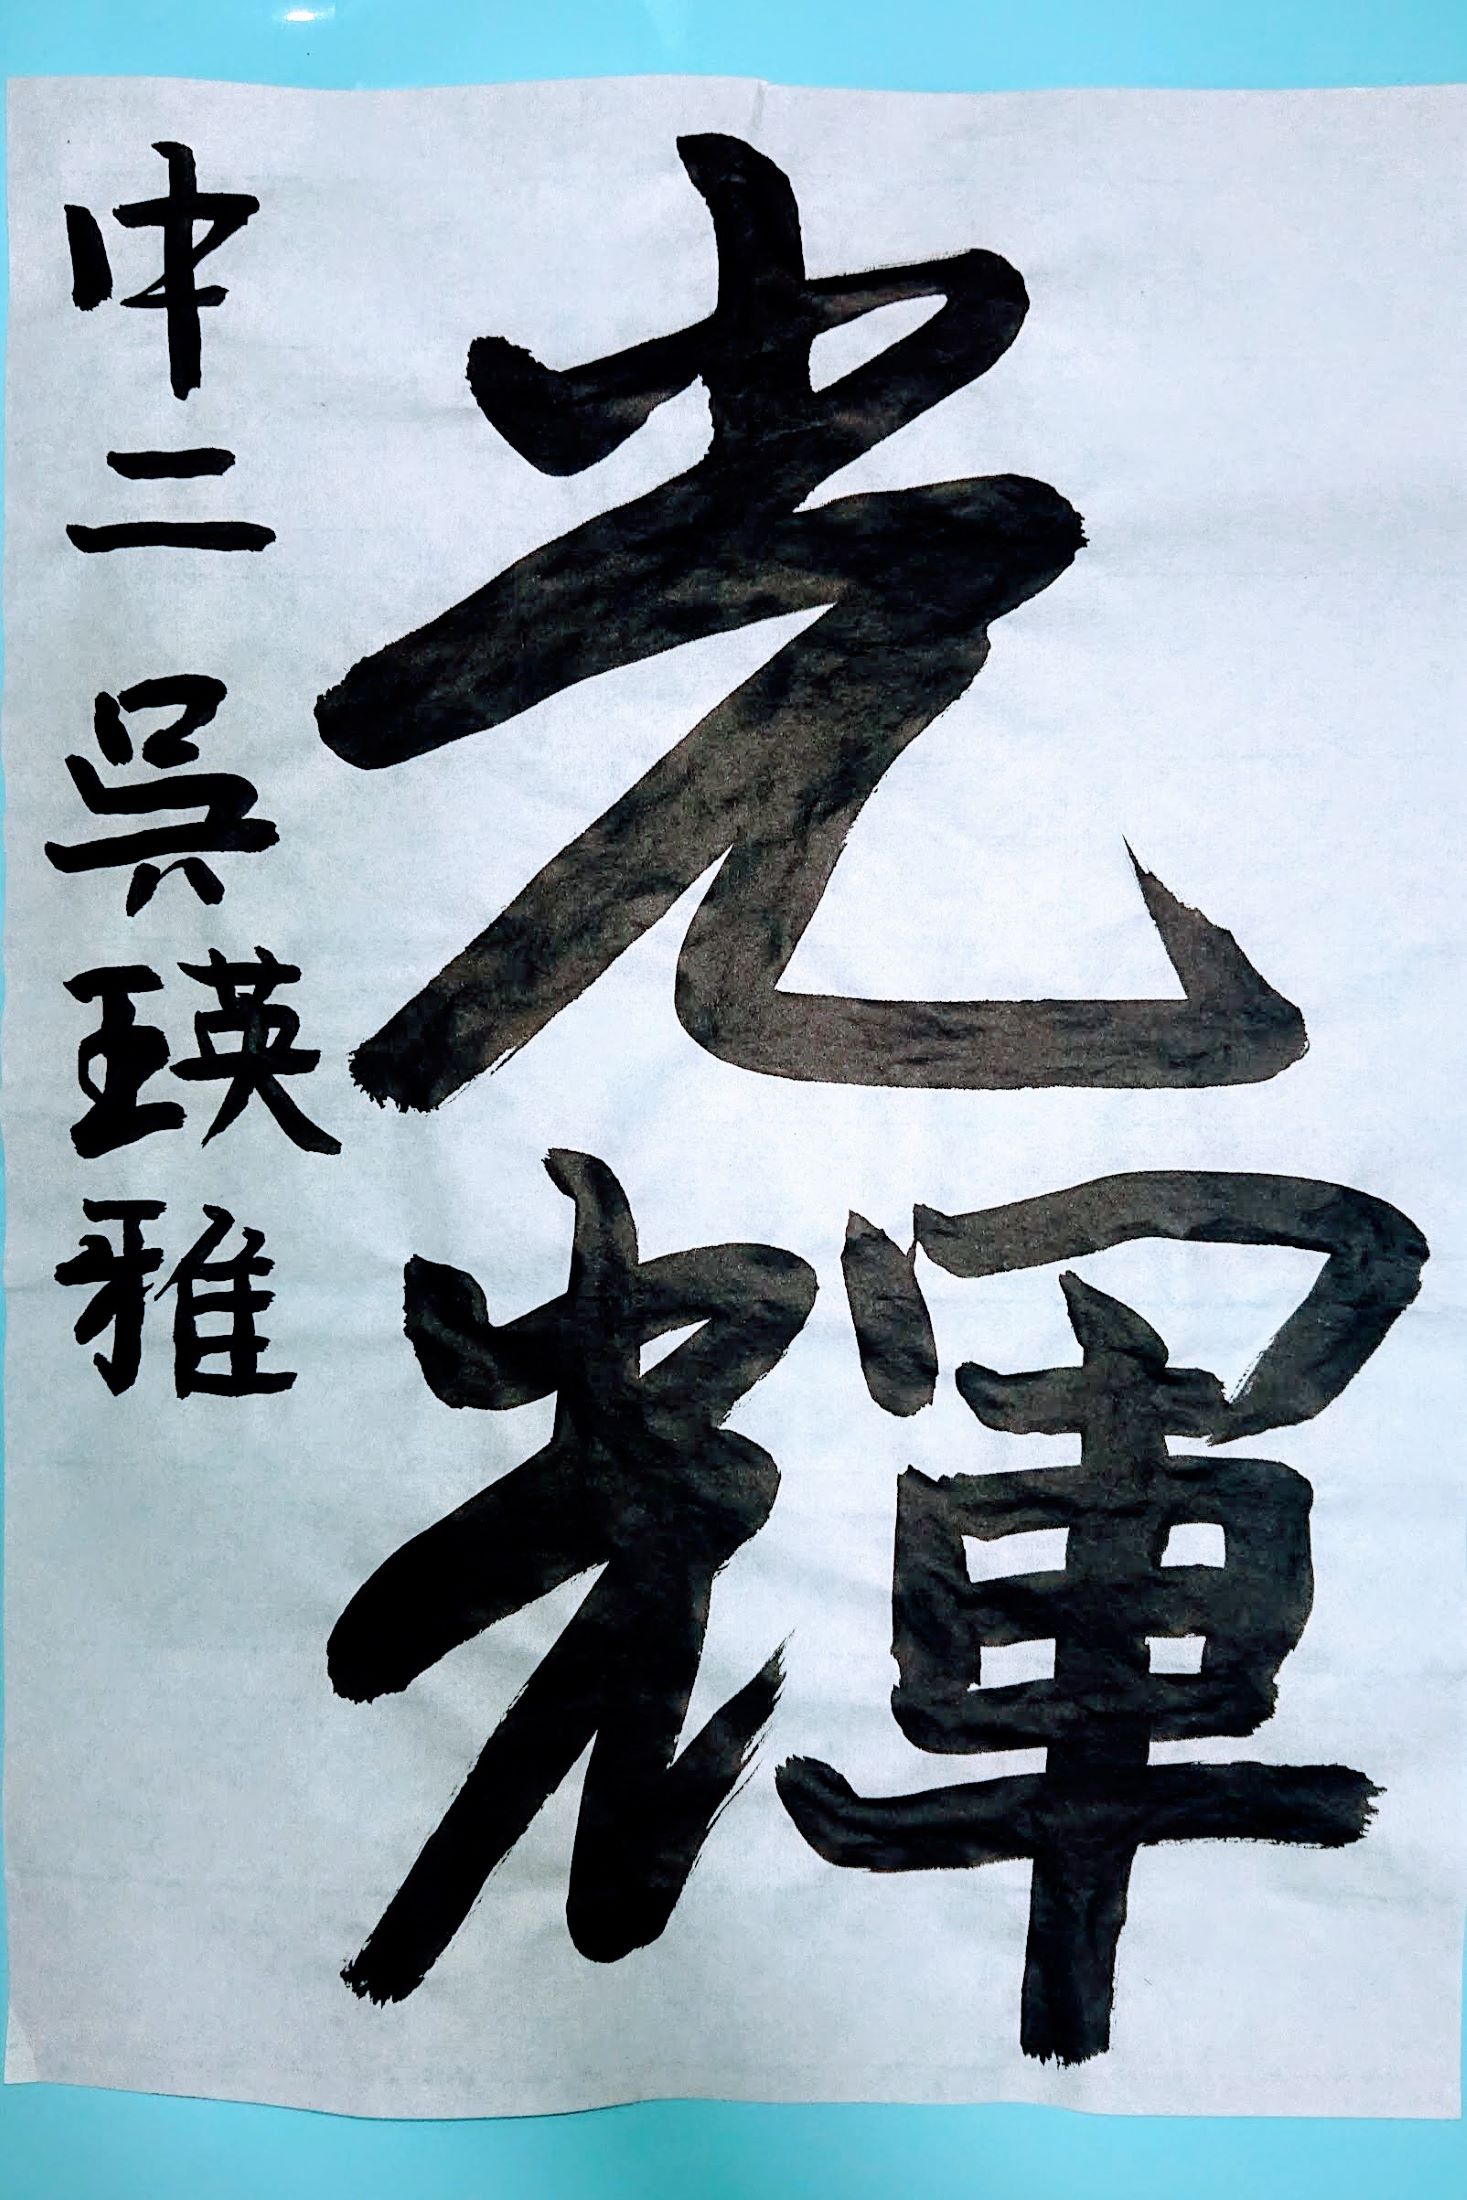 光輝
中二 呉瑛雅